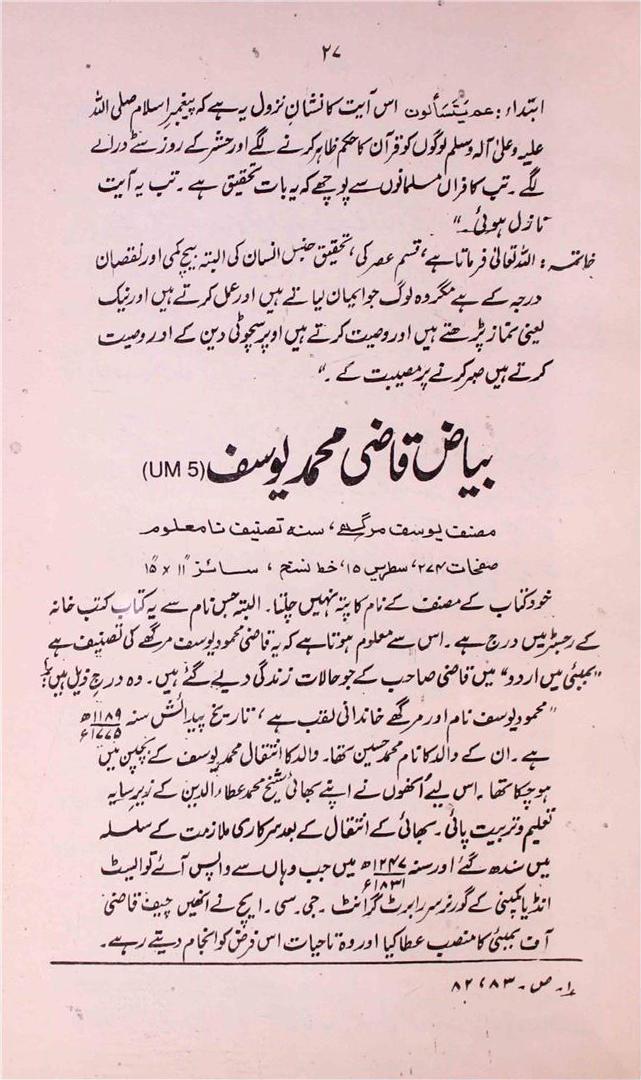 ۲۷
ابتداء : عم یتسألون اس آیت کا نشانِ نزول یہ ہے کہ پیغمبر اسلام صلی اللہ
علیہ وعلیٰ آلہ وسلم لوگوں کو قرآن کا حکم ظاہر کرنے لگے اور حشر کے روز سے ڈرانے
لگے ۔ تب کافراں مسلمانوں سے پوچھے کہ یہ بات تحقیق ہے ۔ تب یہ آیت
نازل ہوئی ۔"
خاتمہ : اللہ تعالیٰ فرماتا ہے، قسم عصر کی، تحقیق جنس انسان کی البتہ بیچ کمی اور نقصان
درجہ کے ہے مگر وہ لوگ جو ایمان لیاتے ہیں اور عمل کرتے ہیں اور نیک
یعنی نماز پڑھتے ہیں اور وصیت کرتے ہیں اوپر سچوٹی دین کے اور وصیت
کرتے ہیں صبر کرنے پر مصیبت کے ۔"
بیاض قاضی محمد یوسف (UM 5)
مصنف یوسف مرگھے ، سنہ تصنیف نامعلوم
صفحات ۲۷۴، سطریں ۱۵، خط نسخ ، سائز ۱۱" × ۱۵"
خود کتاب کے مصنف کے نام کا پتہ نہیں چلتا۔ البتہ جس نام سے یہ کتاب کتب خانہ
کے رجسٹر میں درج ہے ۔ اس سے معلوم ہوتا ہے کہ یہ قاضی محمود یوسف مرگھے کی تصنیف ہے
"بمبئی میں اردو" میں قاضی صاحب کے جو حالات زندگی دیے گئے ہیں ۔ وہ درج ذیل ہیں :۱؎
"محمود یوسف نام اور مرگھے خاندانی لقب ہے ، تاریخ پیدائش سنہ ۱۱۸۹ھ / ۱۷۷۵ء
ہے ۔ ان کے والد کا نام محمد حسین تھا۔ والد کا انتقال محمد یوسف کے بچپن میں
ہو چکا تھا ۔ اس لیے اُنھوں نے اپنے بھائی شیخ محمد عطاء الدین کے زیرِ سایہ
تعلیم و تربیت پائی ۔ بھائی کے انتقال کے بعد سرکاری ملازمت کے سلسلہ
میں سندھ گئے اور سنہ ۱۲۴۷ھ / ۱۸۳۱ء میں جب وہاں سے واپس آئے تو ایسٹ
انڈیا کمپنی کے گورنر سر رابرٹ گرانٹ ۔ جی ۔ سی ۔ ایچ نے انھیں چیف قاضی
آف بمبئی کا منصب عطا کیا اور وہ تا حیات اس فرض کو انجام دیتے رہے ۔
۱؎ ص ۔ ۸۲،۸۳